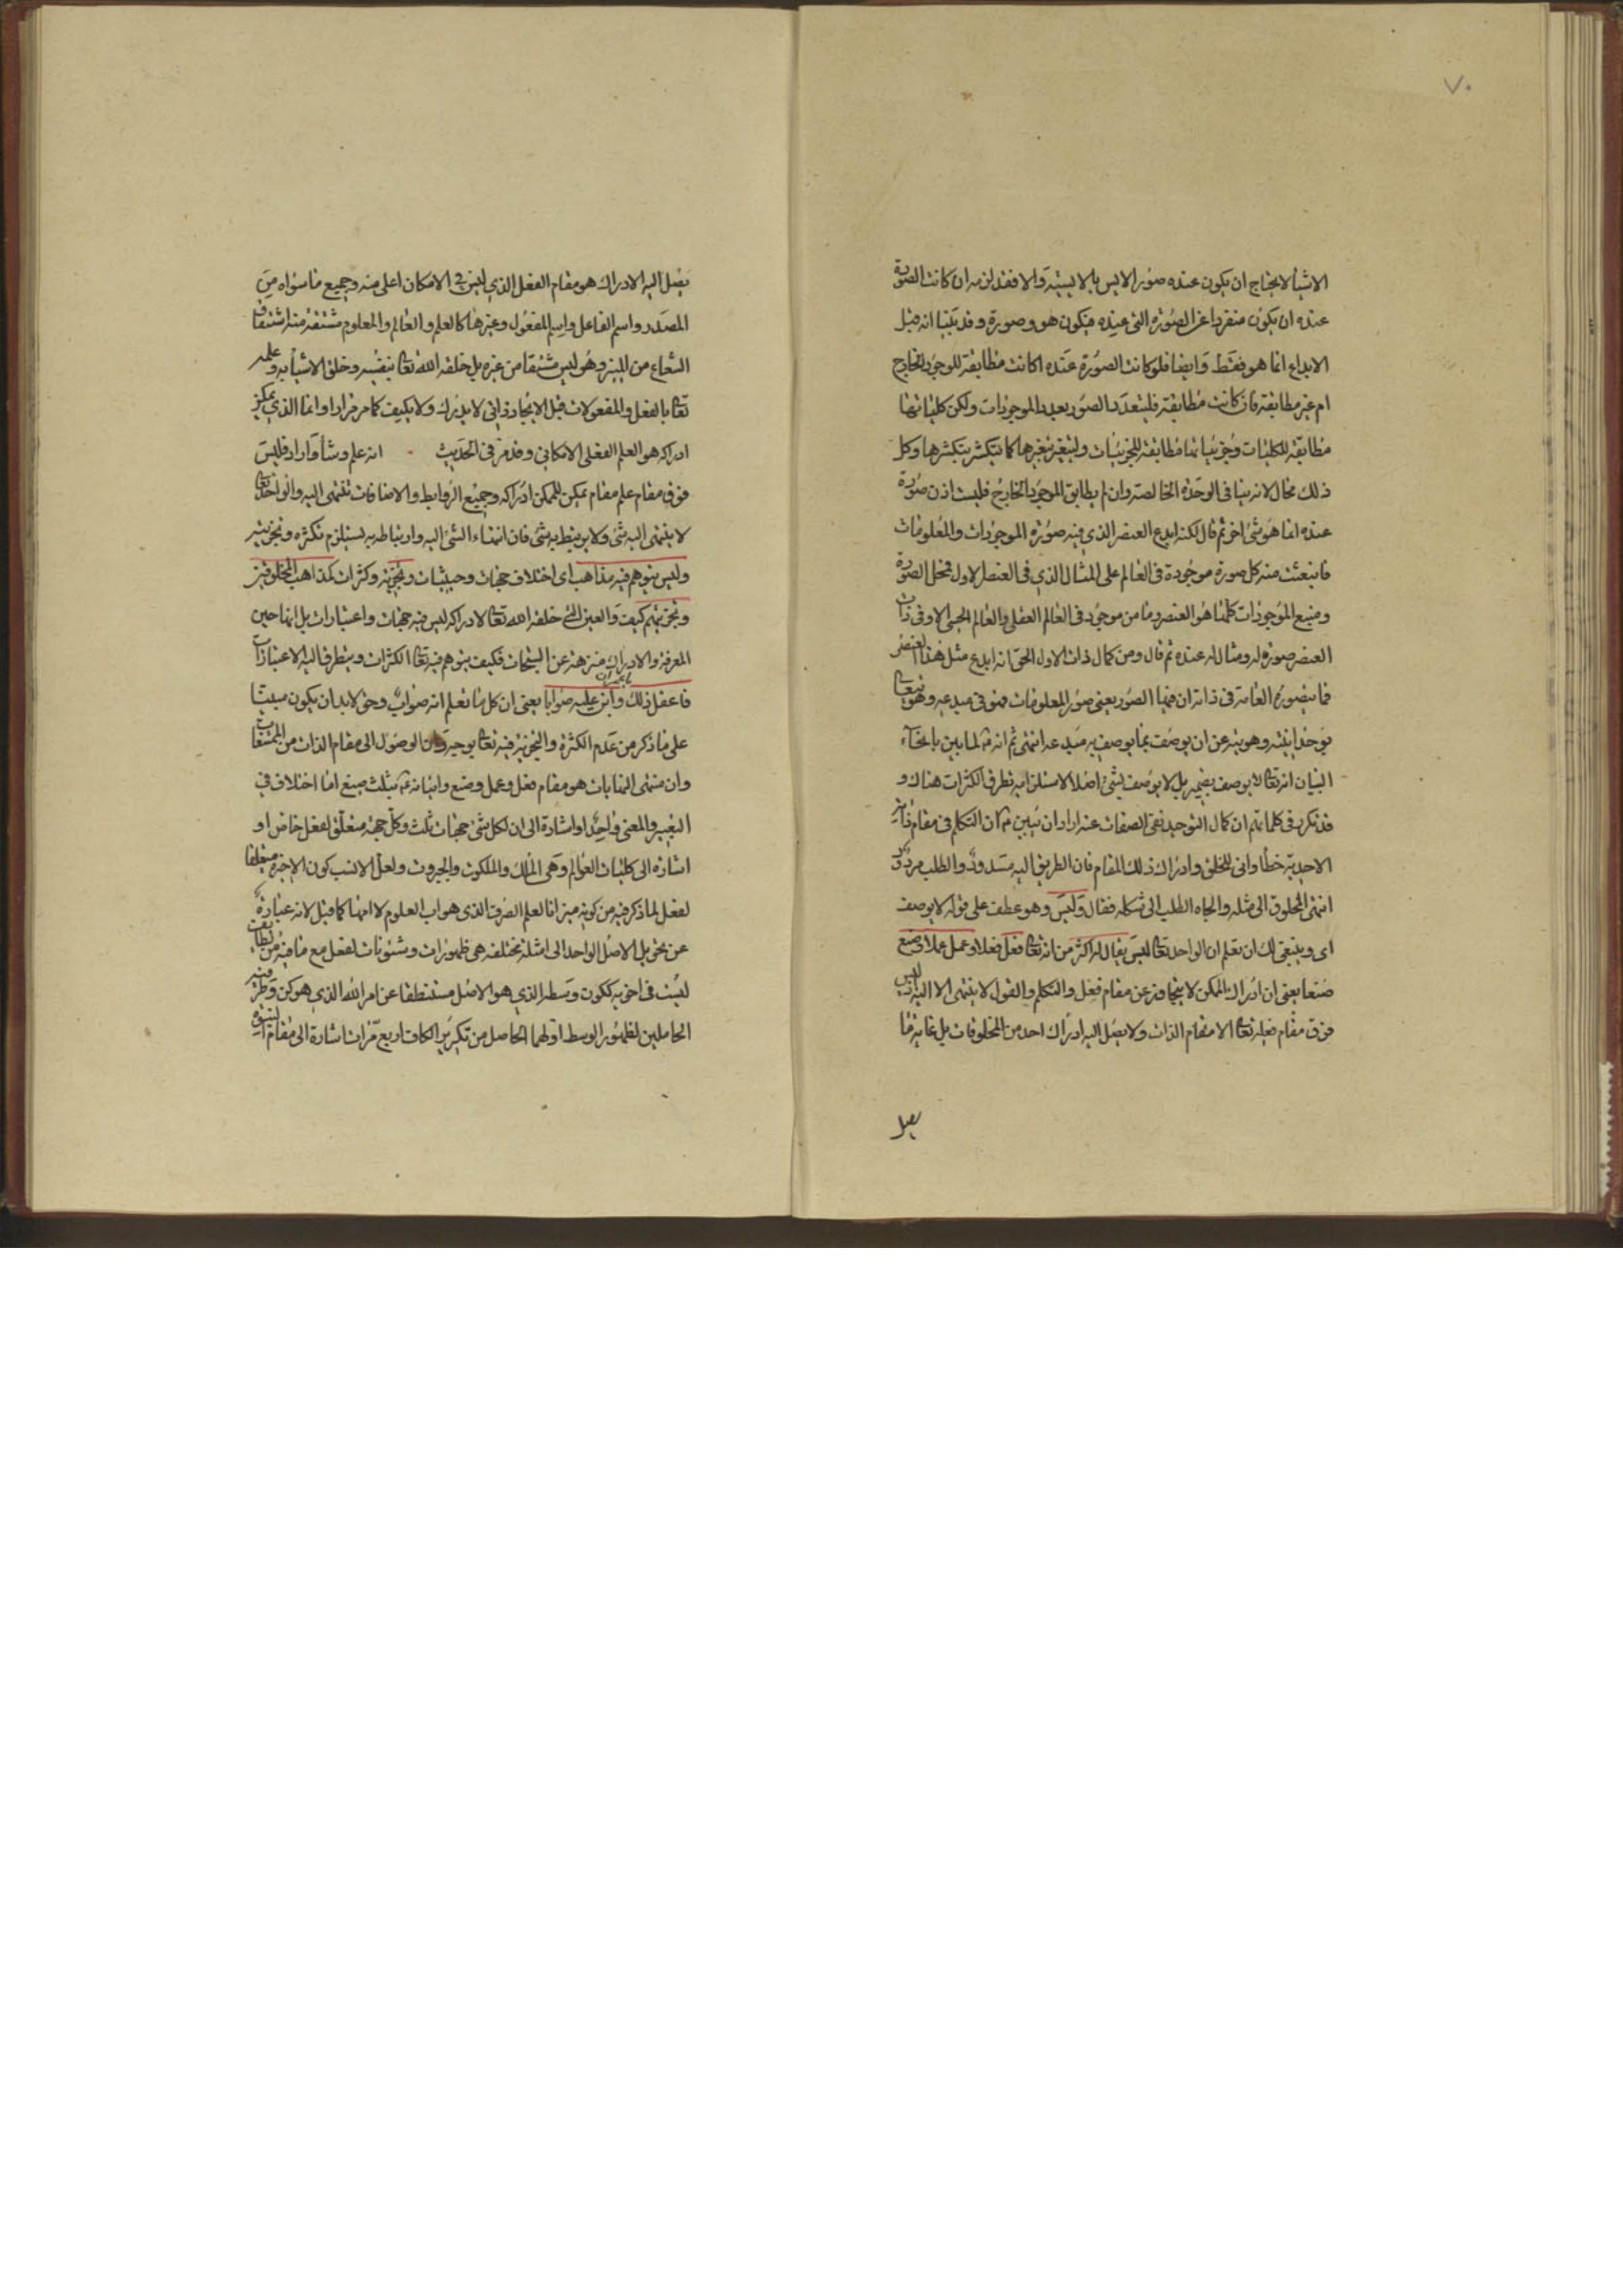 ٧٠
الاشيآ لا يحتاج ان يكون عنده صور الايس بالايسيّة والا فقد لزمه ان كانت الصورة
عنده ان يكون منفردا عن الصورة التى عنده فيكون هو وصورة وقد بيّنا انه قبل
الابداع انما هو فقط وايضا فلو كانت الصورة عنده اكانت مطابقة للوجود الخارج
ام غير مطابقة فان كانت مطابقة فليتعدد الصور بعدد الموجودات ولكن كلياتها
مطابقة للكليات وجزئياتها مطابقة للجزئيات وليتغير بتغيرها كما يتكثر بتكثرها وكل
ذلك محال لانه ينافى الوحدة الخالصة وان لم يطابق الموجود الخارج فليست اذن صورة
عنده انما هو شئ اخر ثم قال لكنه ابدع العنصر الذي فيه صورة الموجودات والمعلومات
فانبعثت منه كل صورة موجودة فى العالم على المثال الذي فى العنصر الاول فمحل الصورة
ومنبع الموجودات كلها هو العنصر وما من موجود فى العالم العقلى والعالم الحسى الا وفى ذات
العنصر صورة له ومثال له عنده ثم قال ومن كمال ذات الاول الحق انه ابدع مثل هذا العنصر
فما يتصوره العامة فى ذاته ان فيها الصور يعنى صور المعلومات فهو فى مبدعه وهو يتعالى
بوحدانيته وهويته عن ان يوصف بما يوصف به مبدعه انتهى ثم انه لما بين بانحآء
البيان انه تعالى لا يوصف بضمير بل لا يوصف بشئ اصلا لاستلزامه تطرق الكثرات هناك و
قد تكرر فى كلماتهم ان كمال التوحيد نفى الصفات عنه اراد ان يبين ان التكلم فى مقام ذاته
الاحدية خطأ وانى للخلق وادراك ذلك المقام فان الطريق اليه مسدود والطلب مردود
انتهى المخلوق الى مثله والجاه الطلب الى شكله فقال وليس وهو عطف على قوله لا يوصف
اى وينبغى لك ان تعلم ان الواحد تعالى ليس يقال له اكثر من انه تعالى فعل فعلا وعمل عملا وصنع
صنعا يعنى ان ادراك الممكن لا يتجاوز عن مقام فعل والتكلم والقول لا ينتهى الا اليه اذ ليس
فوق مقام فعله تعالى الا مقام الذات ولا يصل اليه ادراك احد من المخلوقات بل غاية ما
يصل
يصل اليه الادراك هو مقام الفعل الذي ليس فى الامكان اعلى منه وجميع ما سواه من
المصدر واسم الفاعل واسم المفعول وغيرها كالعلم والعالم والمعلوم مشتقة منه اشتقاق
الشعاع من المنير وهو ليس مشتقا من غيره بل خلقه الله تعالى بنفسه وخلق الاشيآ به وعلمه
تعالى بالفعل والمفعولات قبل الايجاد ذاتى لا يدرك ولا يكيف كما مر مرارا وانما الذي يمكن
ادراكه هو العلم الفعلى الامكانى وقد مر فى الحديث انه علم وشآء واراد فليس
فوق مقام علم مقام يمكن للممكن ادراكه وجميع الروابط والاضافات تنتهى اليه والواحد تعالى
لا ينتهى اليه شئ ولا يرتبط به شئ فان انتهاء الشئ اليه وارتباطه به يستلزم تكثره وتجزيته
وليس يتوهم فيه مذاهب اى اختلاف جهات وحيثيات وتجزية وكثرات كمذاهب المخلوقين
وتجزيتهم كيف والعين التى خلقها الله تعالى لادراكه ليس فيه جهات واعتبارات بل انها حين
المعرفة والادراك منزهة عن السبحات فكيف يتوهم فيه تعالى الكثرات ويتطرق اليه الاعتبارات
فاعقل ذلك وابن عليه صوابا يعنى ان كل ما تعلم انه صواب وحق لابد ان يكون مبتنيا
على ما ذكر من عدم الكثرة والتجزية فيه تعالى بوجه وان الوصول الى مقام الذات من الممتنعات
وان منتهى النهايات هو مقام فعل وعمل وصنع واتيانه بثلث صيغ اما اختلاف فى
التعبير والمعنى واحد او اشارة الى ان لكل شئ جهات ثلث وكل جهة متعلق لفعل خاص او
اشارة الى كليات العوالم وهى الملك والملكوت والجبروت ولعل الانسب كون الاخيرة متعلقا
لفعل لما ذكر فيه من كونه ميزانا لعلم الصرف الذى هو اب العلوم لا امها كما قيل لانه عبارة
عن تحويل الاصل الواحد الى امثلة مختلفة هى ظهورات وشئونات لفعل مع ما فيه من لطائف
ليست فى اخويه ككون وسطه الذي هو الاصل مستنطقا عن امر الله الذي هو كن وطرفيه
الحاملين لظهور الوسط اولهما الحاصل من تكرير الكاف اربع مرات اشارة الى مقام